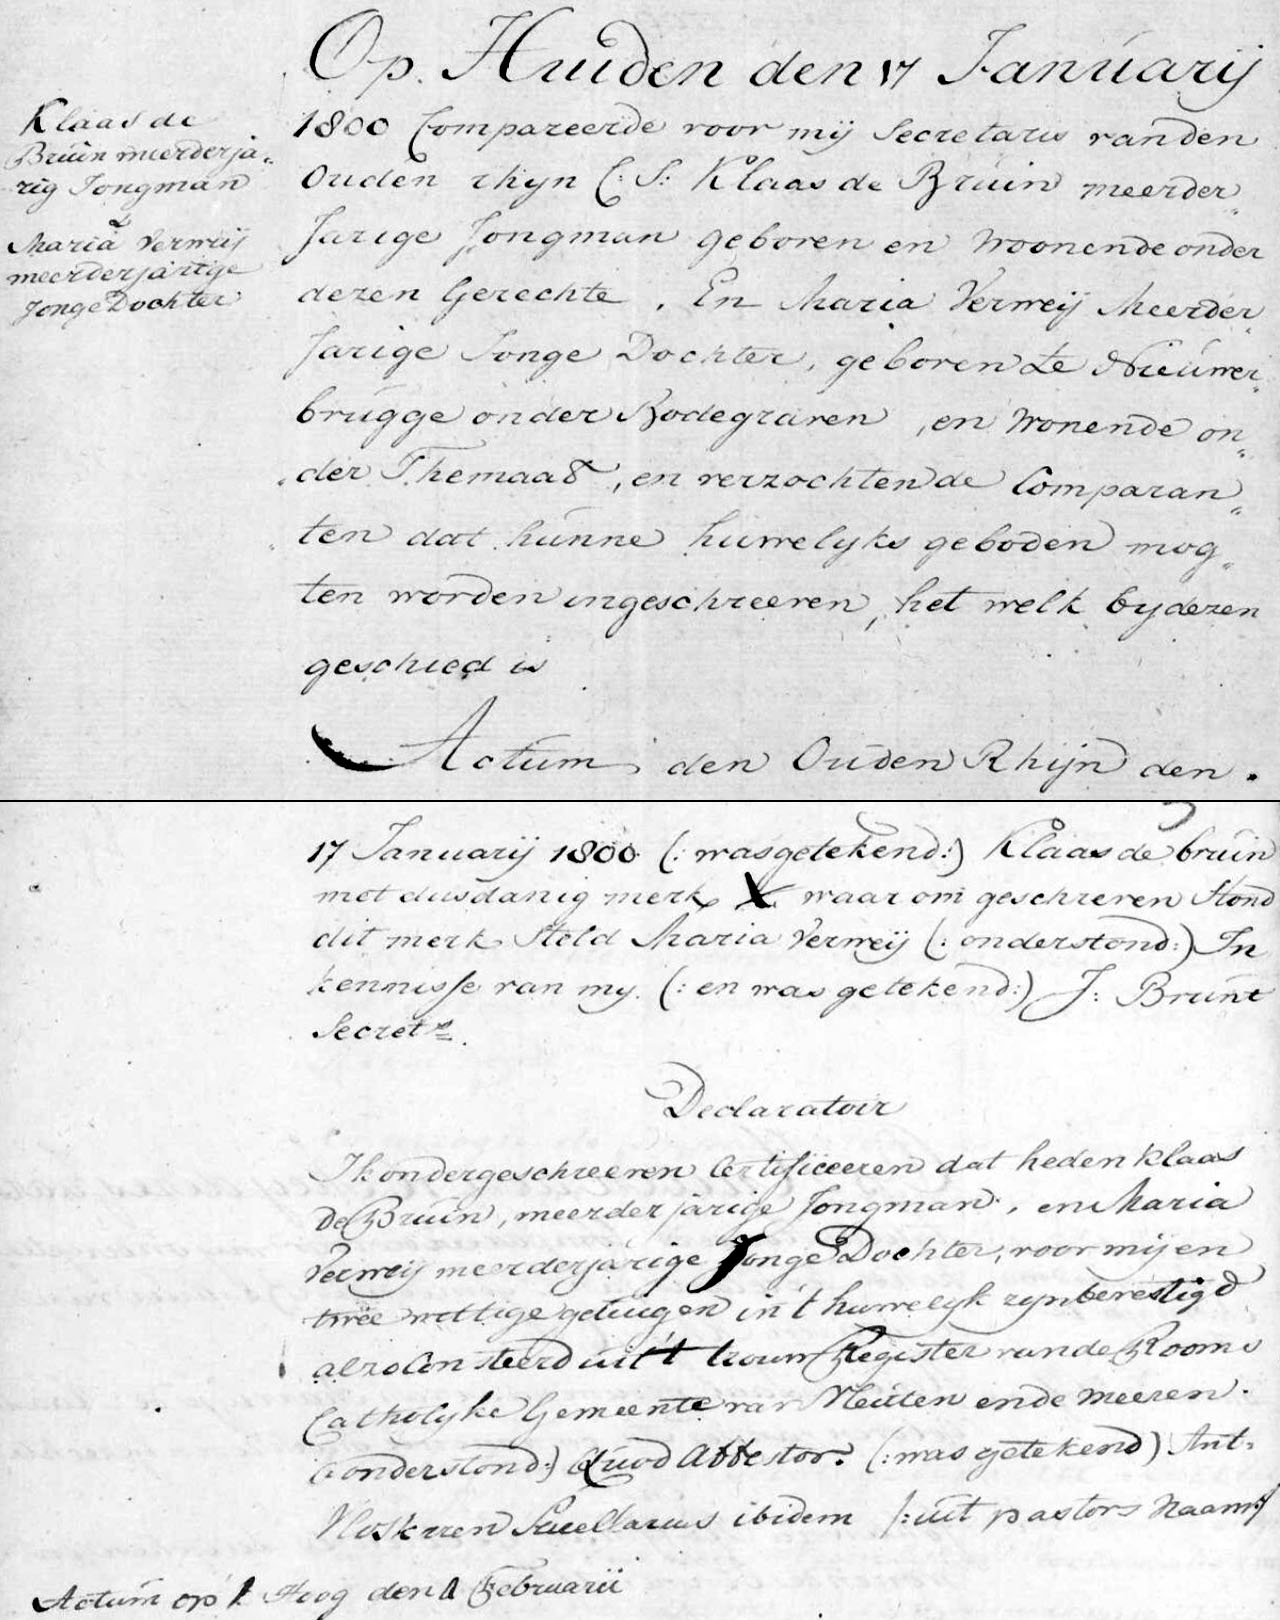 Op Huiden den 17 Januarij
Klaas de
Bruin meerderja„
rig Jongman
&
Maria Verweij
meerderjarige
Jonge Dochter
1800 Compareerde voor mij Secretaris van den
Ouden rhijn C: S: Klaas de Bruin meerder„
Jarige Jongman geboren en Woonende onder
dezen Gerechte, En Maria Verweij Meerder„
Jarige Jonge Dochter, geboren te Nieuwer„
brugge onder Bodegraven, en Wonende on„
„der Themaat, en verzochten de Comparan„
„ten dat hunne huwelyks geboden mog„
ten worden ingeschreeven, het welk by dezen
geschied is
Actum den Ouden Rhijn den
17 Januarij 1800 (: was getekend:) Klaas de bruin
met dusdanig merk X waar om geschreven Stond
dit merk Steld Maria Verweij (: onderstond:) In
kennisse van my. (: en was getekend:) J: Brunt
Secrets.
Declaratoir
Ik ondergeschreeven Certificeeren dat heden klaas
De Bruin, meerderjarige Jongman, en Maria
Verweij meerderjarige Jonge Dochter, voor mij en
twee wettige getuigen in't huwelyk zyn bevestigd
alzo Consteerd uit 't trouw Register van de Rooms
Catholyke Gemeente van Vleuten en de Meeren.
(: onderstond:) Quod Attestor. (: was getekend) Ant:
Sacellarius ibidem /: uit pastors Naam:/
Actum op 't Hoog den 1 Februarii